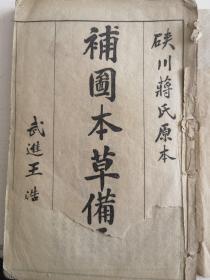 硤川蔣氏原本
補圖本草備
武進王浩